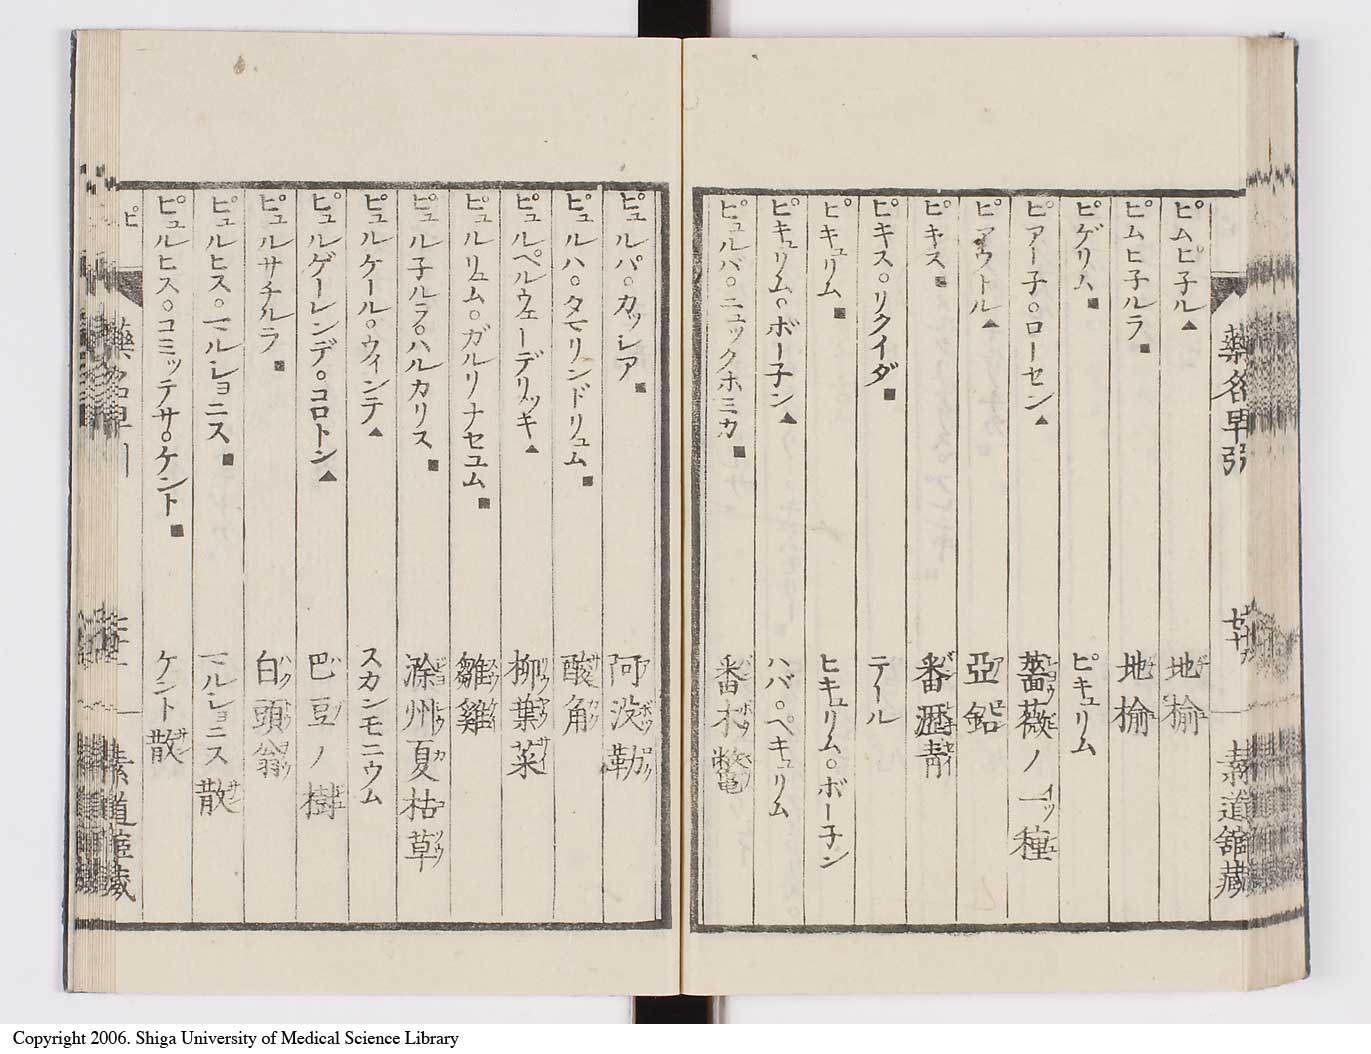 藥名早引
素道舘藏
ピムピ子ル▲ 地榆
ピムヒ子ルラ■ 地榆
ピゲリム■ ピキュリム
ピアー子。ローセン▲ 薔薇ノ一種
ピアウトル▲ 亞鉛
ピキス■ 番瀝青
ピキス。リクイダ■ テール
ピキュリム■ ヒキュリム。ボー子ン
ピキュリム。ボー子ン▲ ハバ。ペキュリム
ピュルバ。ニュックホミカ■ 番木鼈
ピュルパ。カッシア■ 阿没勒
ピュルハ。タマリンドリュム■ 酸角
ピュルペルウェーデリッキ▲ 柳葉菜
ピュルリュム。ガルリナセユム■ 雛雞
ピュル子ルラ。ハルカリス■ 滁州夏枯草
ピュルケール。ウィンテ▲ スカンモニウム
ピュルゲーレンデ。コロトン▲ 巴豆ノ樹
ピュルサチルラ■ 白頭翁
ピュルヒス。マルショニス■ マルショニス散
ピュルヒス。コミッテサ。ケント■ ケント散
ピ
Copyright 2006. Shiga University of Medical Science Library